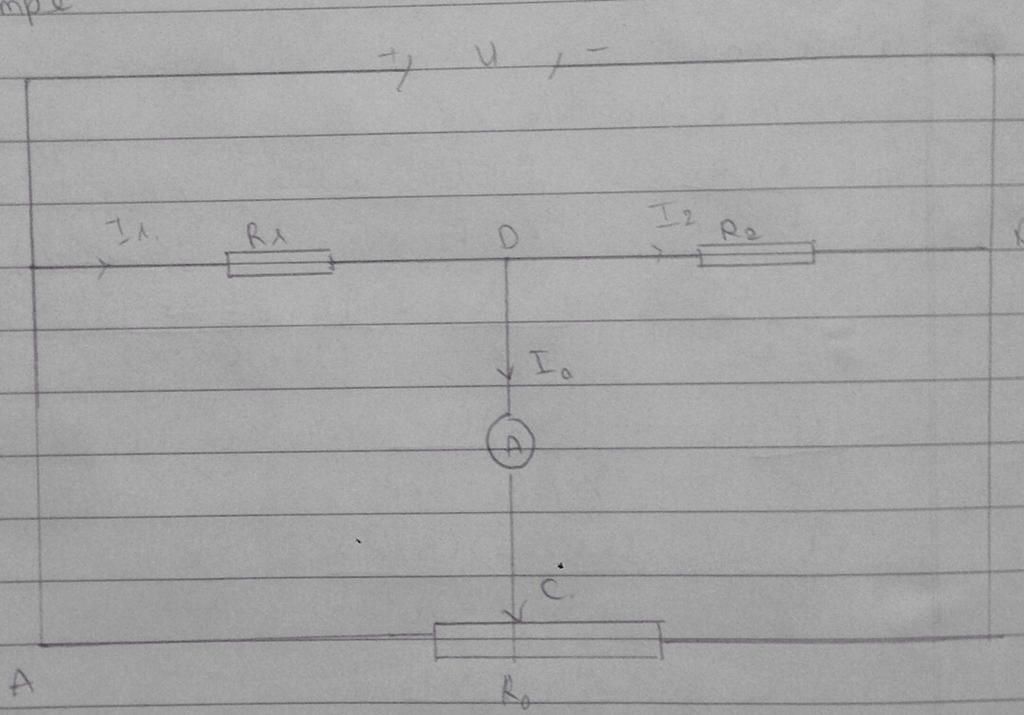 + U -
I1. R1 D I2 R2
I0
A
C.
A
R0